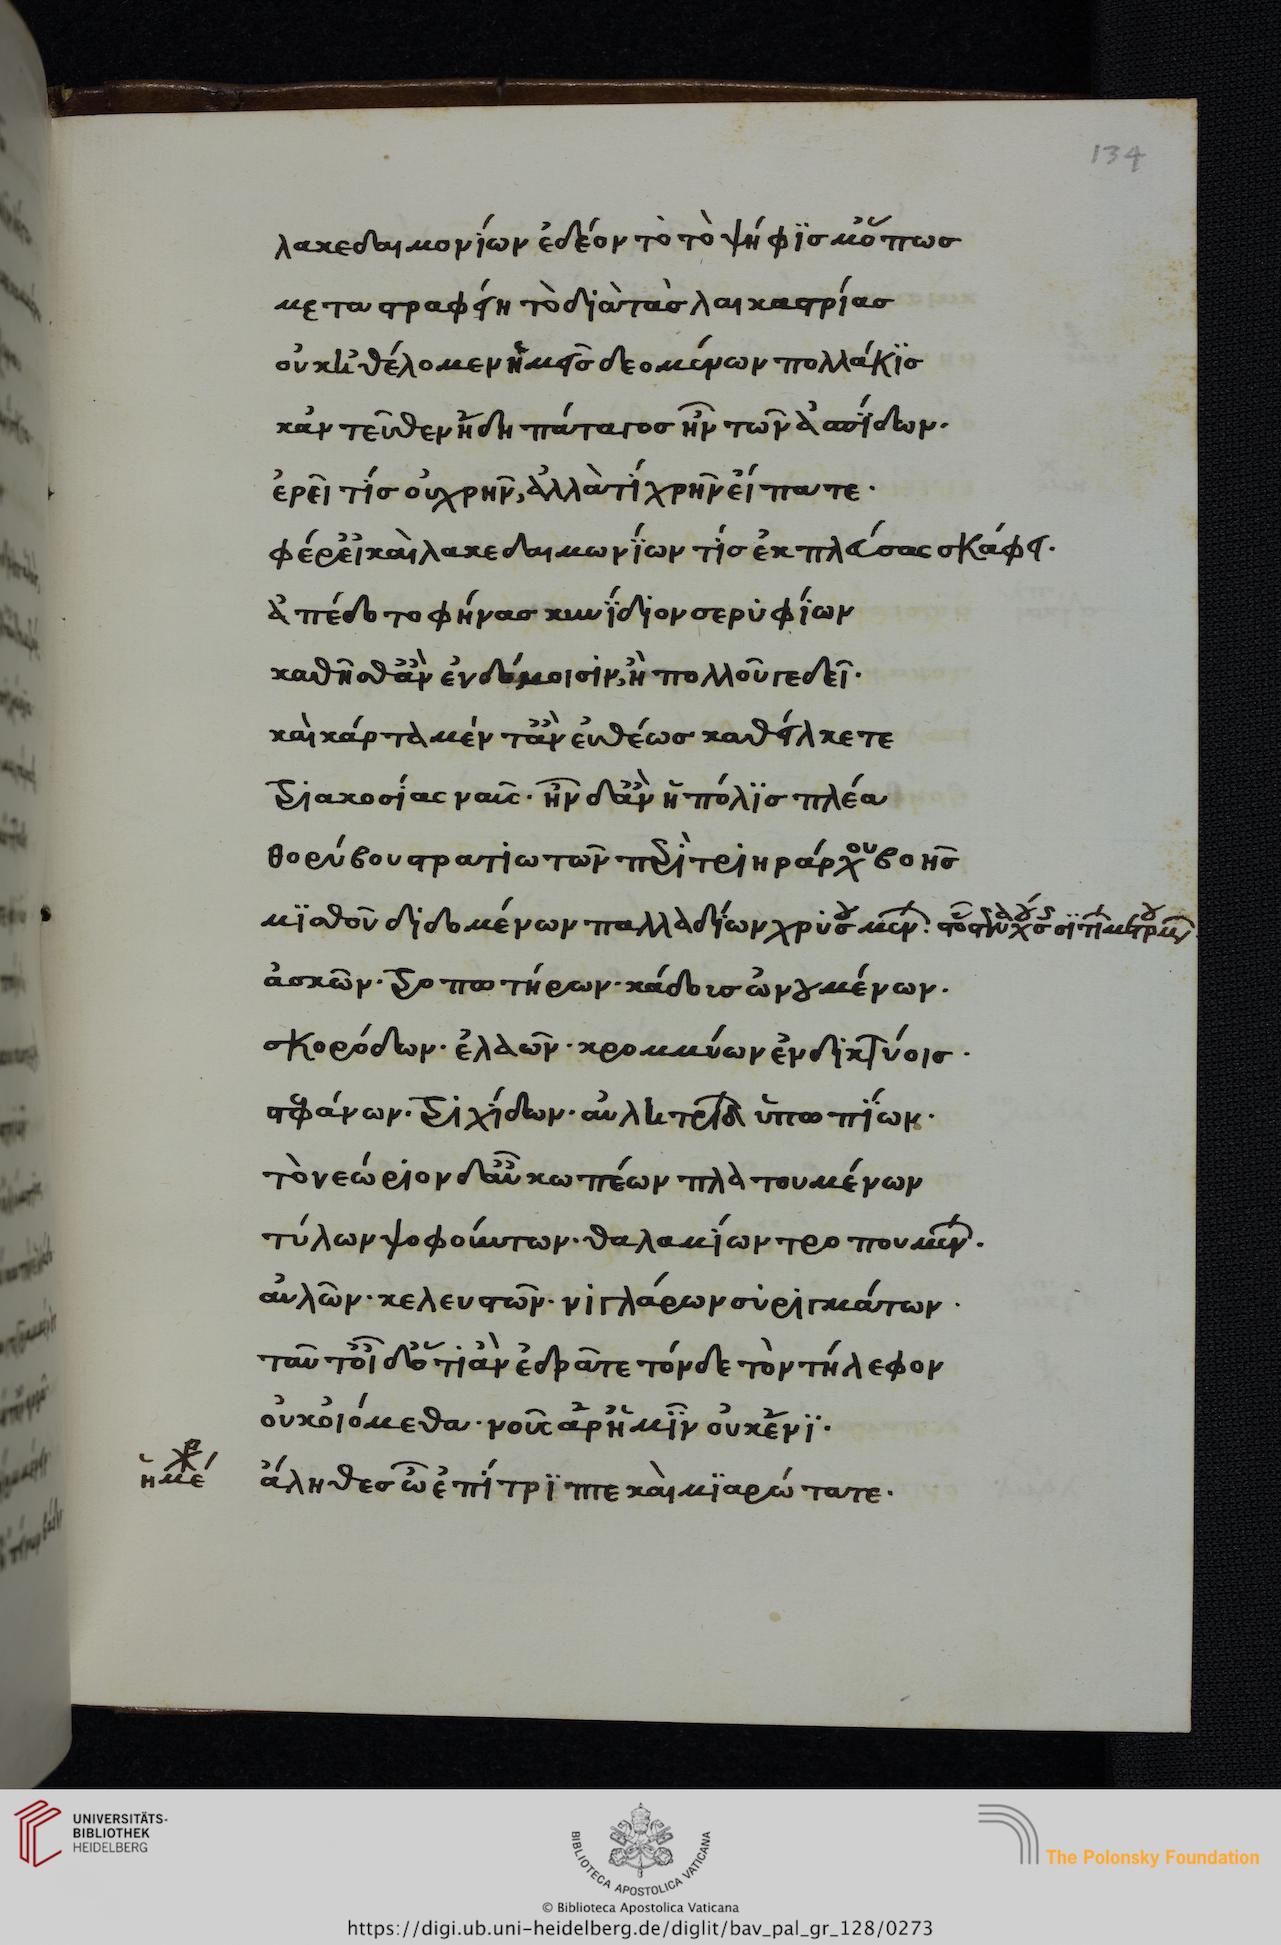 134
λακεδαιμονίων ἐδέοντὸ τὸ ψήφϊσμ' ὅπως
μεταστραφείη τὸ διὰ τὰς λαικαστρίας
οὐκ ἠθέλομεν ἡμεῖς δεομένων πολλάκϊς
κἀντεῦθεν ἤδη πάταγος ἦν τῶν ἀσπίδων.
ἐρεῖ τίς οὐ χρῆν, ἀλλὰ τί χρῆν εἴπατε.
φέρ' εἰ καὶ λακεδαιμωνίων τίς ἐκπλεύσας σκάφει.
ἀπέδοτο φήνας κυνίδιον σερϋφίων
καθῆσθ' ἂν ἐν δόμοισιν, ἢ πολλοῦ γε δεῖ.
καὶ κάρτα μέν τἂν εὐθέως καθείλκετε
διακοσίας ναῦς. ἦν δ' ἂν ἡ πόλϊς πλέα
θορύβου στρατιωτῶν περὶ τριηράρχου βοῆς
μϊσθοῦ διδομένων παλλαδίων χρυσουμένων. στοᾶς στεναχούσης σιτίων μετρουμένων
ἀσκῶν. τροπωτήρων. κάδοις ὠνουμένων.
σκορόδων. ἐλαῶν. κρομμύων ἐν δικτύοις.
στεφάνων. τριχίδων. αὐλητρίδων ὑπωπίων.
τὸ νεώριον δ' αὖ κωπέων πλατουμένων
τύλων ψοφούντων. θαλαμίων τροπουμένων.
αὐλῶν. κελευστῶν. νιγλάρων συριγμάτων.
ταῦτ' οἶδ' ὅτι ἂν ἐδρᾶτε τόνδε τὸν τήλεφον
οὐκ οἰόμεθα. νοῦς ἄρ' ἡμῖν οὐκ ἔνϊ.
ἡμέ ἄληθες ὦ ἐπίτρϊπτε καὶ μϊαρώτατε.
UNIVERSITÄTS-
BIBLIOTHEK
HEIDELBERG
BIBLIOTECA APOSTOLICA VATICANA
The Polonsky Foundation
© Biblioteca Apostolica Vaticana
https://digi.ub.uni-heidelberg.de/diglit/bav_pal_gr_128/0273